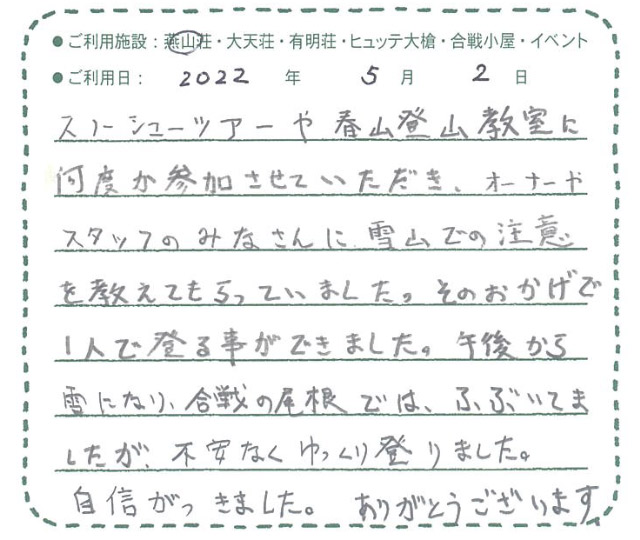 ●ご利用施設：燕山荘・大天荘・有明荘・ヒュッテ大槍・合戦小屋・イベント
●ご利用日： 2022 年 5 月 2 日
スノーシューツアーや春山登山教室に
何度か参加させていただき、オーナーや
スタッフのみなさんに雪山での注意
を教えてもらっていました。そのおかげで
1人で登る事ができました。午後から
雪になり、合戦の尾根では、ふぶいてま
したが、不安なくゆっくり登りました。
自信がつきました。 ありがとうございます